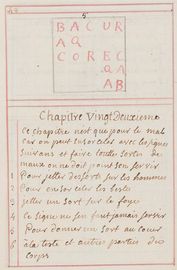 5
B A C U R
A Q
C O R E C
Q A
A B
Chapitre Vingt Deuxieme
Ce chapitre nest que pour le mal
car on peut ensorceler avec les signes
Suivans et faire toutte Sortes de
maux on ne doit point Sen Servir
1 Pour jetter des Sorts sur les hommes
2 Pour ensorceler les bestes
3 jetter un Sort sur le foye
4 Ce Signe ne Sen faut jamais Servir
5 Pour donner un Sort au coeur
a la teste et autres parties du
corps